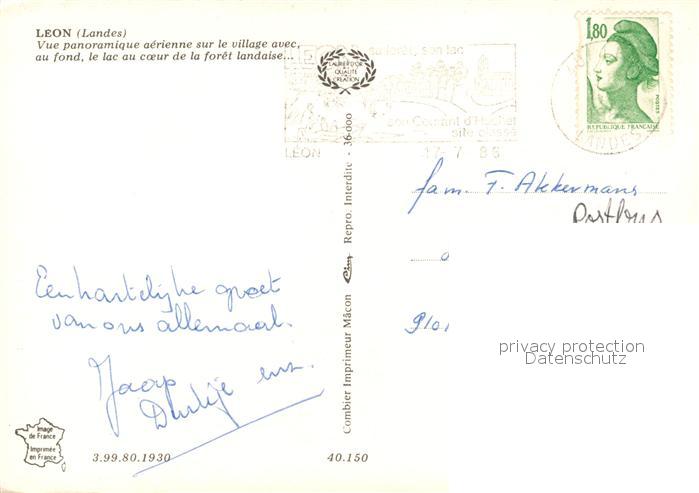 LEON (Landes)
Vue panoramique aérienne sur le village avec,
au fond, le lac au cœur de la forêt landaise...
sa forêt, son lac
son Courant d'Huchet
site classé
LEON
17-7 86
LAURIER D'OR
DE LA
QUALITÉ
CRÉATION
1,80
POSTES
REPUBLIQUE FRANÇAISE
LANDES
fam. F. Akkermans
Een hartelijke groet
van ons allemaal.
Jaap
enz.
Combier Imprimeur Mâcon Cim Repro. Interdite - 36-000
privacy protection
Datenschutz
Image
de France
Imprimée
en France
3.99.80.1930
40.150